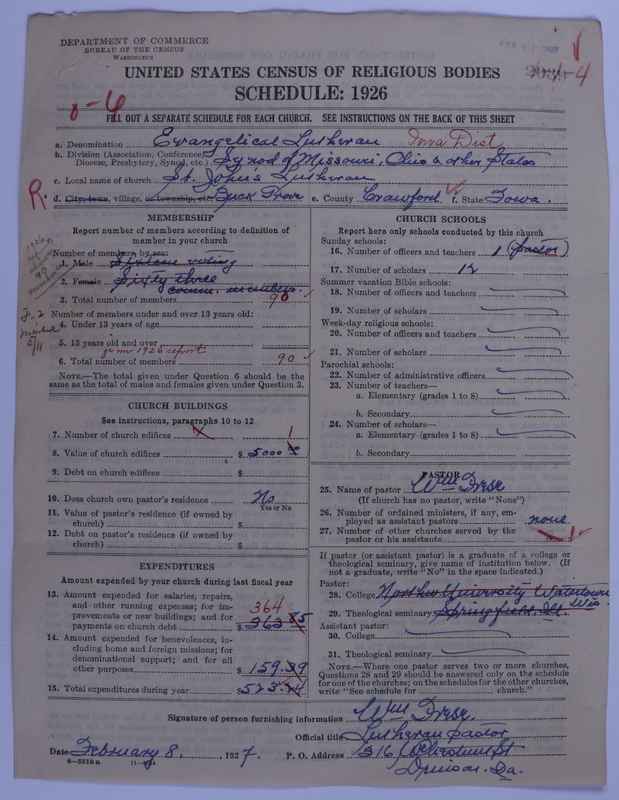 DEPARTMENT OF COMMERCE
BUREAU OF THE CENSUS
WASHINGTON
1927
4
UNITED STATES CENSUS OF RELIGIOUS BODIES
SCHEDULE: 1926
8-6
FILL OUT A SEPARATE SCHEDULE FOR EACH CHURCH. SEE INSTRUCTIONS ON THE BACK OF THIS SHEET
a. Denomination Evangelical Lutheran Iowa Dist
b. Division (Association, Conference, Diocese, Presbytery, Synod, etc.) Synod of Missouri, Ohio & other States
c. Local name of church St. John's Lutheran
R. d. City, town, village, or township, etc. Buck Grove e. County Crawford f. State Iowa.
MEMBERSHIP
Report number of members according to definition of
member in your church
Number of members by sex:
1. Male Sixteen voting
2. Female Sixty three
comm. members
3. Total number of members 90
Number of members under and over 13 years old:
4. Under 13 years of age
5. 13 years old and over
from 1926 report
6. Total number of members 90
NOTE.—The total given under Question 6 should be the
same as the total of males and females given under Question 3.
CHURCH BUILDINGS
See instructions, paragraphs 10 to 12
7. Number of church edifices 1
8. Value of church edifices $ 5000
9. Debt on church edifices $
10. Does church own pastor's residence No
Yes or No
11. Value of pastor's residence (if owned by
church) $
12. Debt on pastor's residence (if owned by
church) $
EXPENDITURES
Amount expended by your church during last fiscal year
13. Amount expended for salaries, repairs,
and other running expenses; for im-
provements or new buildings; and for
364
payments on church debt $ 363.85
14. Amount expended for benevolences, in-
cluding home and foreign missions; for
denominational support; and for all
other purposes $ 159.39
15. Total expenditures during year $ 523.24
CHURCH SCHOOLS
Report here only schools conducted by this church
Sunday schools:
16. Number of officers and teachers 1 (pastor)
17. Number of scholars 12
Summer vacation Bible schools:
18. Number of officers and teachers
19. Number of scholars
Week-day religious schools:
20. Number of officers and teachers
21. Number of scholars
Parochial schools:
22. Number of administrative officers
23. Number of teachers—
a. Elementary (grades 1 to 8)
b. Secondary
24. Number of scholars—
a. Elementary (grades 1 to 8)
b. Secondary
PASTOR
25. Name of pastor Wm Frese
(If church has no pastor, write "None")
26. Number of ordained ministers, if any, em-
ployed as assistant pastors none
27. Number of other churches served by the
pastor or his assistants 1
If pastor (or assistant pastor) is a graduate of a college or
theological seminary, give name of institution below. (If
not a graduate, write "No" in the space indicated.)
Pastor:
28. College Northw. University Watertown
Wis.
29. Theological seminary Springfield, Ill.
Assistant pastor:
30. College
31. Theological seminary
NOTE.—Where one pastor serves two or more churches,
Questions 28 and 29 should be answered only on the schedule
for one of the churches; on the schedules for the other churches,
write "See schedule for church."
Signature of person furnishing information Wm Frese.
Official title Lutheran pastor
Date February 8, 1927. P. O. Address 1316 Chestnut St
Denison. Ia.
8-5518a